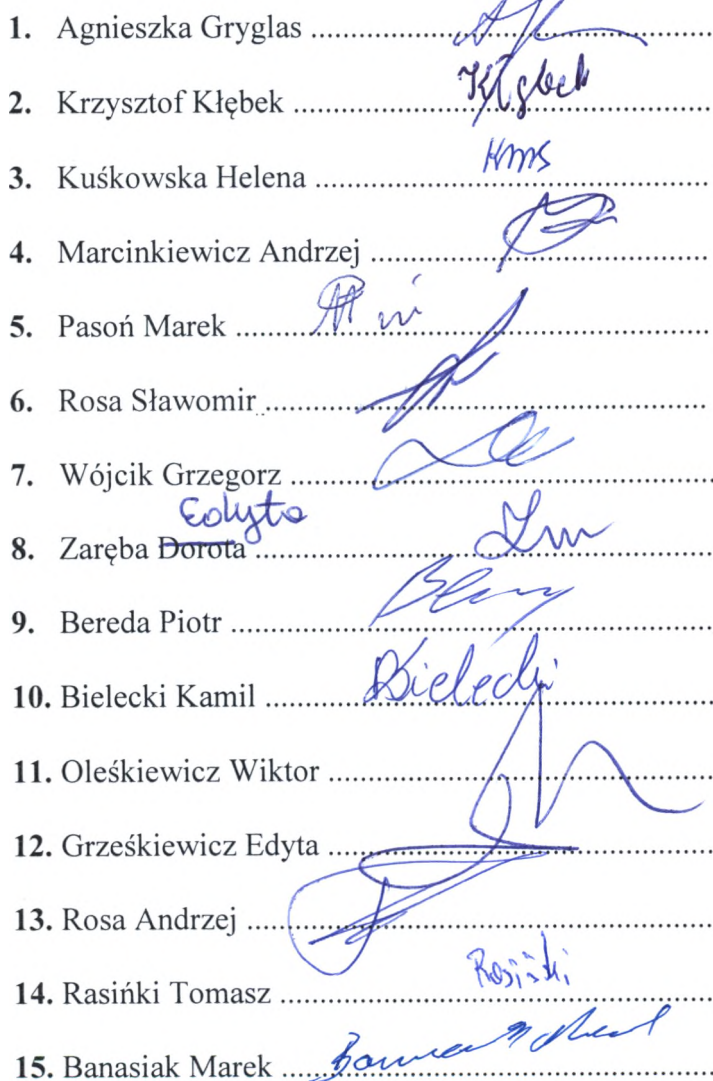 1. Agnieszka Gryglas
2. Krzysztof Kłębek Kłębek
3. Kuśkowska Helena
4. Marcinkiewicz Andrzej
5. Pasoń Marek
6. Rosa Sławomir
7. Wójcik Grzegorz
Edyta
8. Zaręba Dorota
9. Bereda Piotr
10. Bielecki Kamil Bielecki
11. Oleśkiewicz Wiktor
12. Grześkiewicz Edyta
13. Rosa Andrzej
14. Rasińki Tomasz Rasiński
15. Banasiak Marek